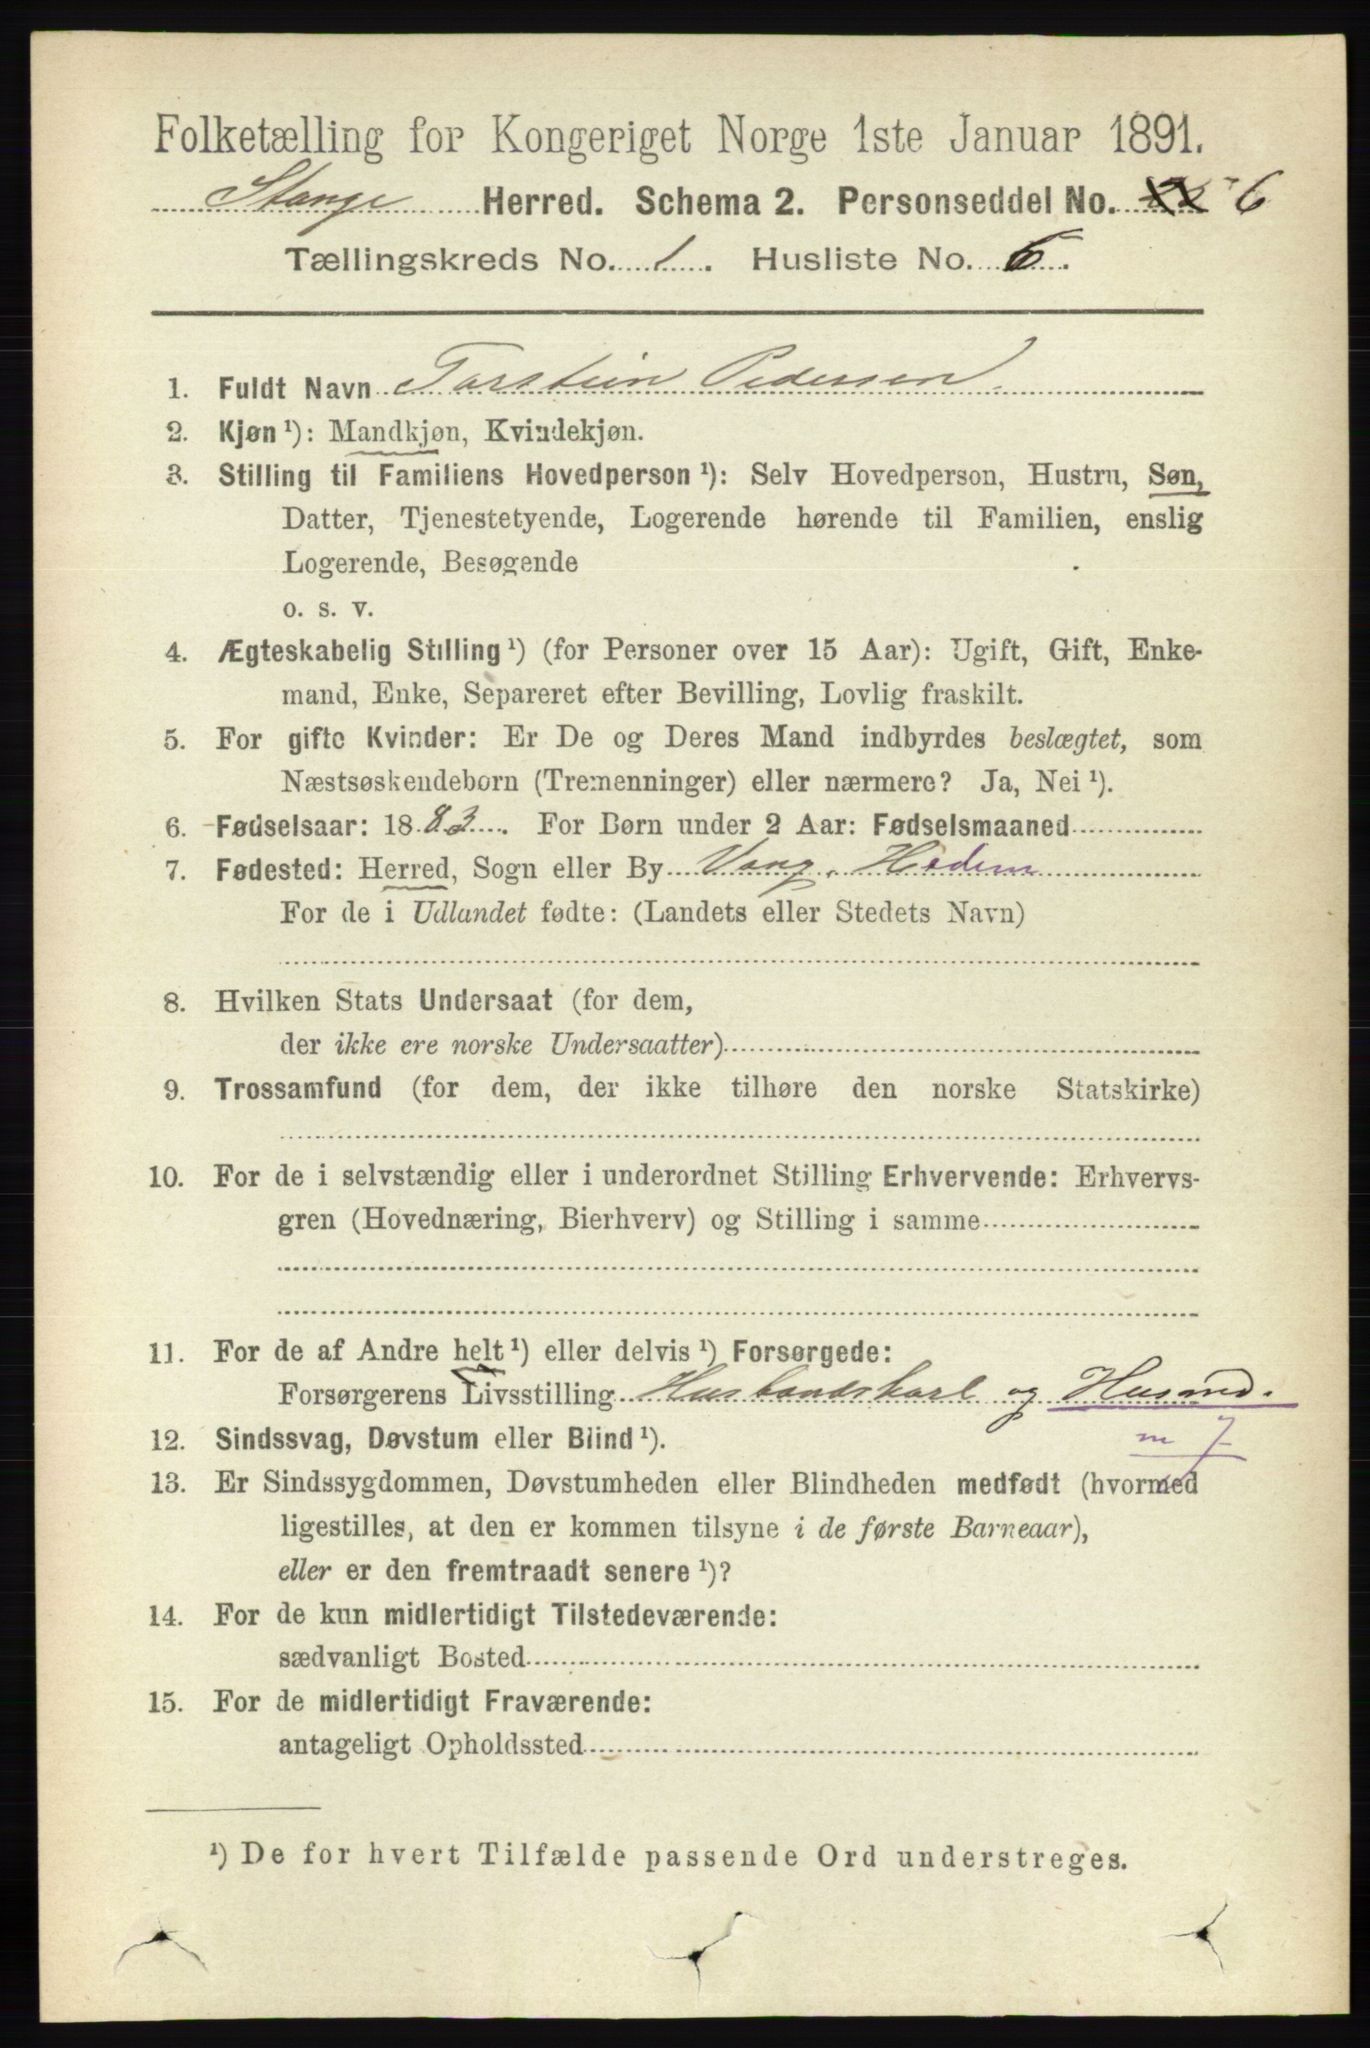 Folketælling for Kongeriget Norge 1ste Januar 1891.
Stange Herred. Schema 2. Personseddel No. 6
Tællingskreds No. 1. Husliste No. 6.
1. Fuldt Navn Torstein Pedersen.
2. Kjøn ¹): Mandkjøn, Kvindekjøn.
3. Stilling til Familiens Hovedperson ¹): Selv Hovedperson, Hustru, Søn,
Datter, Tjenestetyende, Logerende hørende til Familien, enslig
Logerende, Besøgende
o. s. v.
4. Ægteskabelig Stilling ¹) (for Personer over 15 Aar): Ugift, Gift, Enke-
mand, Enke, Separeret efter Bevilling, Lovlig fraskilt.
5. For gifte Kvinder: Er De og Deres Mand indbyrdes beslægtet, som
Næstsøskendebørn (Tremenninger) eller nærmere? Ja, Nei ¹).
6. Fødselsaar: 1883. For Børn under 2 Aar: Fødselsmaaned
7. Fødested: Herred, Sogn eller By Vang, Hedem
For de i Udlandet fødte: (Landets eller Stedets Navn)
8. Hvilken Stats Undersaat (for dem,
der ikke ere norske Undersaatter)
9. Trossamfund (for dem, der ikke tilhøre den norske Statskirke)
10. For de i selvstændig eller i underordnet Stilling Erhvervende: Erhvervs-
gren (Hovednæring, Bierhverv) og Stilling i samme
11. For de af Andre helt ¹) eller delvis ¹) Forsørgede:
Forsørgerens Livsstilling Husbondskarl og Husmd.
12. Sindssvag, Døvstum eller Blind ¹). m J
13. Er Sindssygdommen, Døvstumheden eller Blindheden medfødt (hvormed
ligestilles, at den er kommen tilsyne i de første Barneaar),
eller er den fremtraadt senere ¹)?
14. For de kun midlertidigt Tilstedeværende:
sædvanligt Bosted
15. For de midlertidigt Fraværende:
antageligt Opholdssted
¹) De for hvert Tilfælde passende Ord understreges.